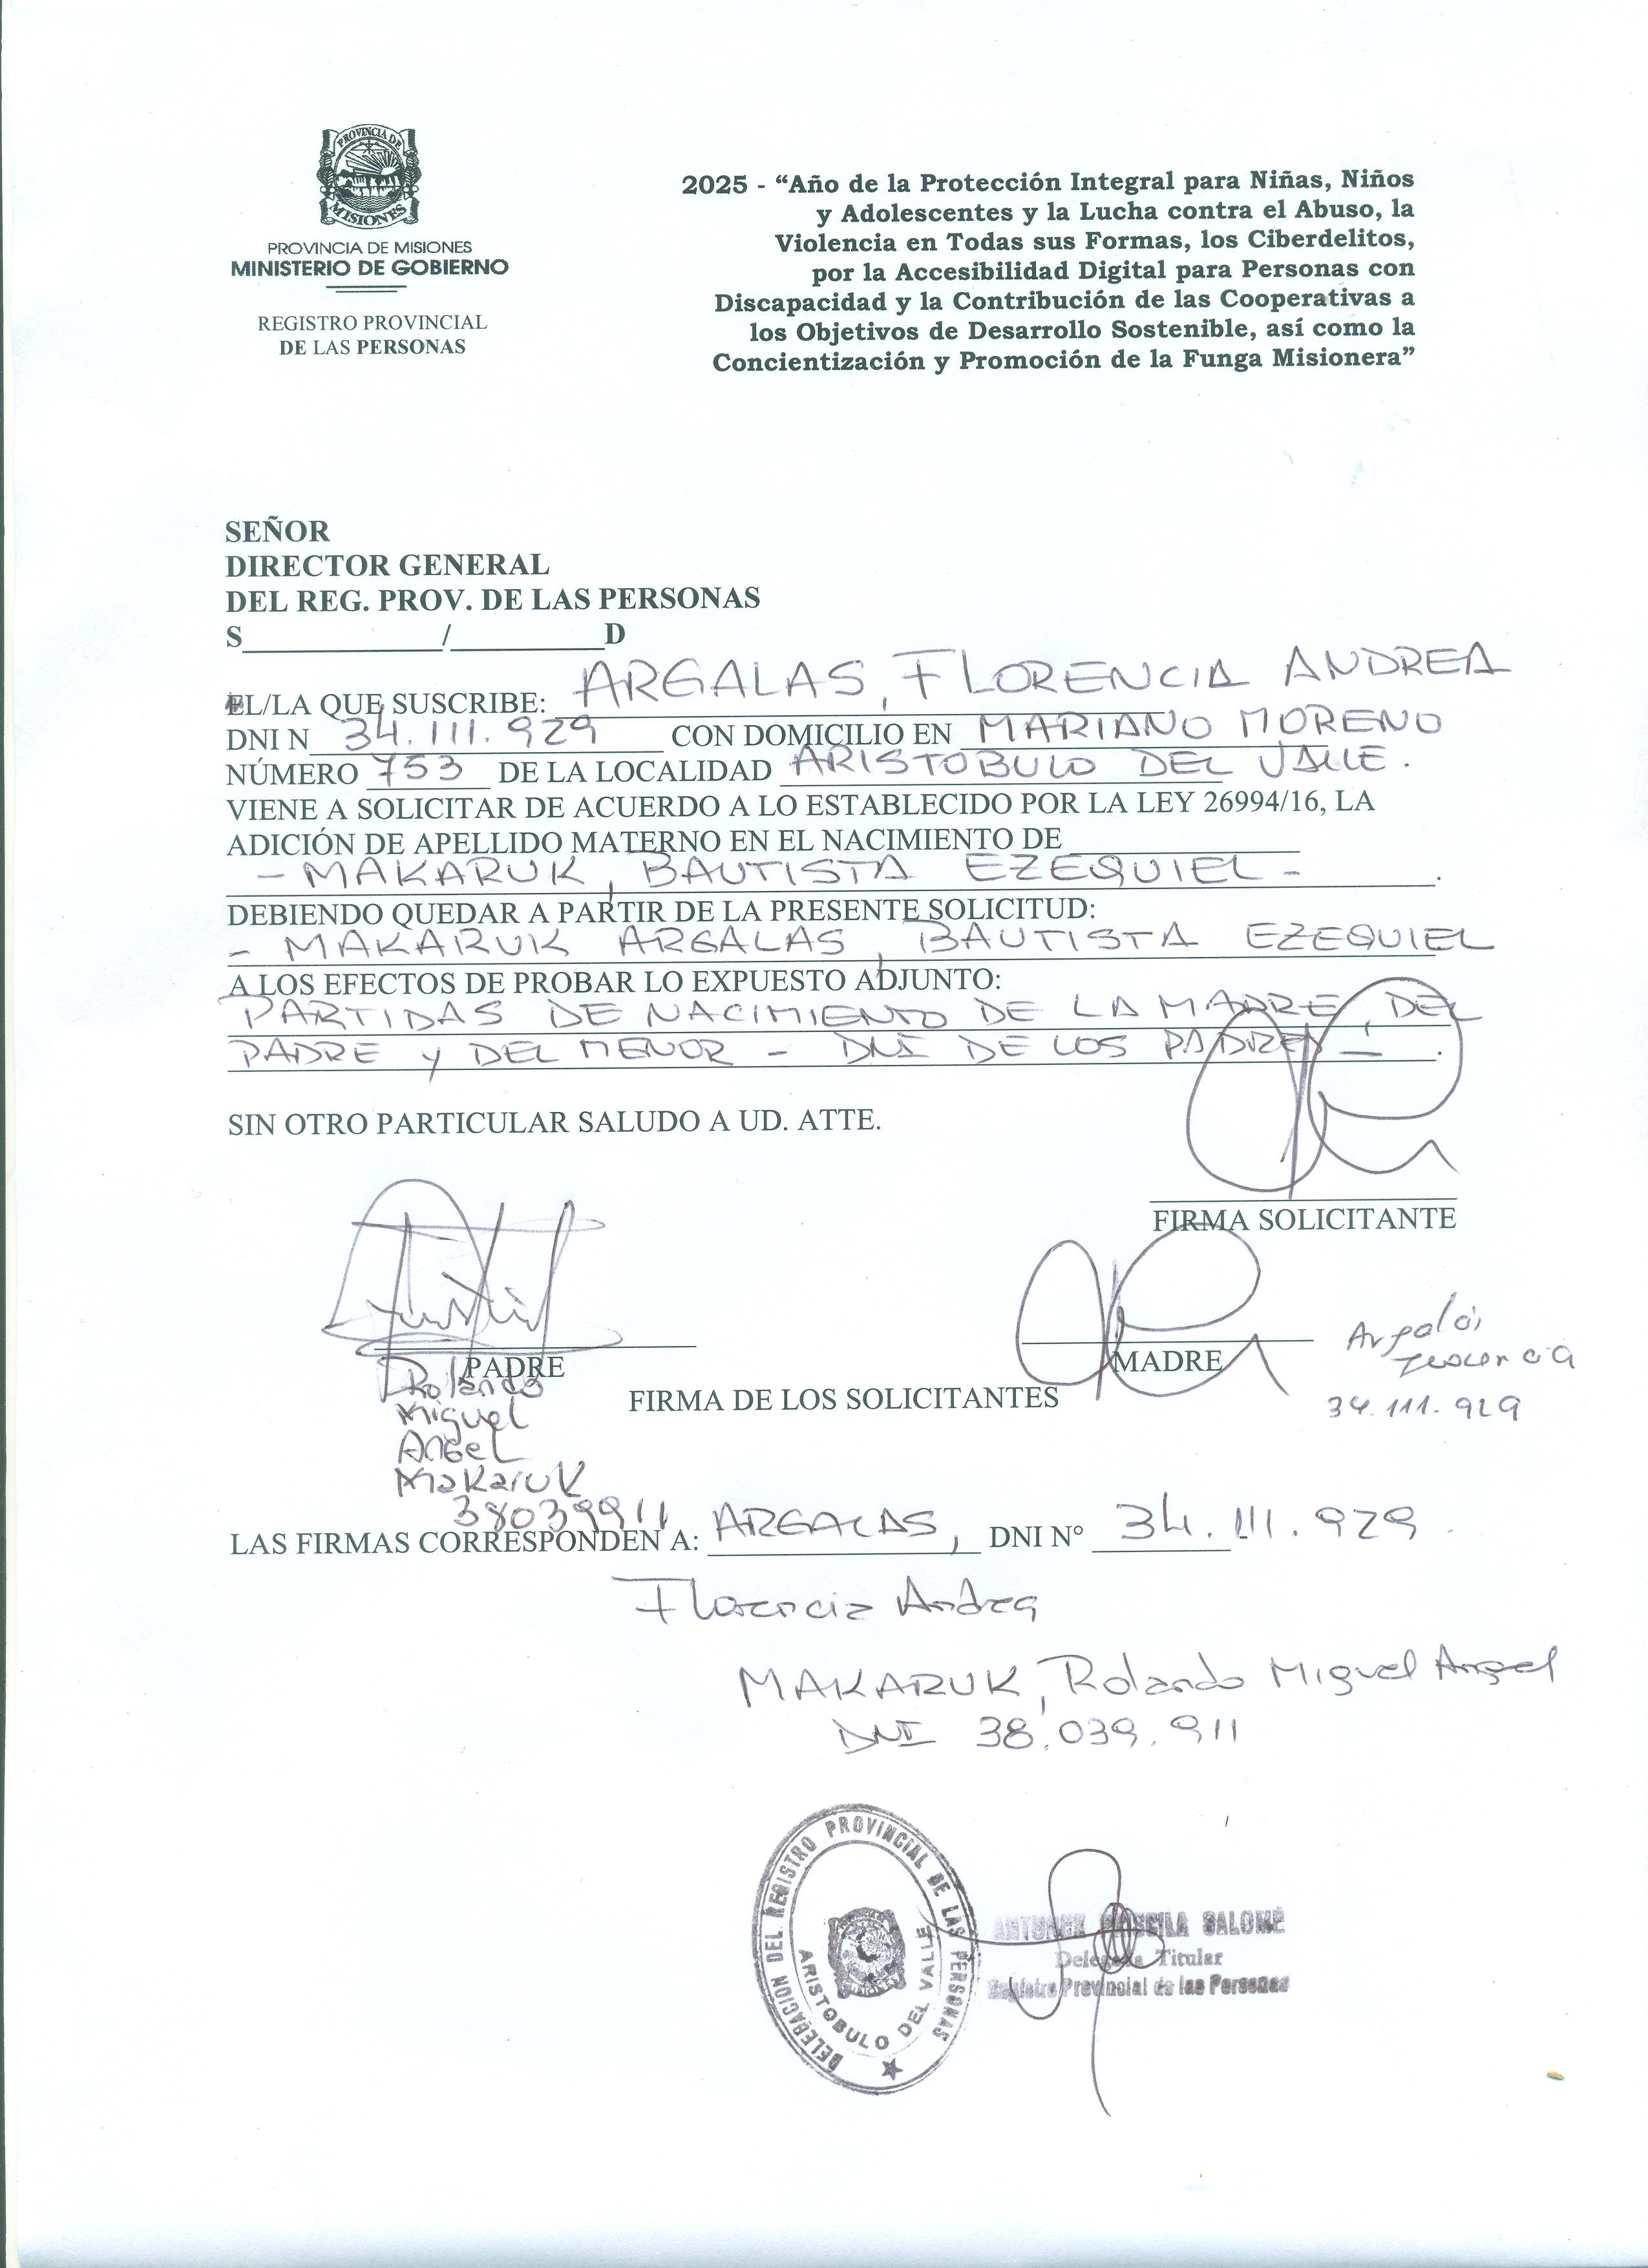 PROVINCIA DE
MISIONES
PROVINCIA DE MISIONES
MINISTERIO DE GOBIERNO
REGISTRO PROVINCIAL
DE LAS PERSONAS
2025 - “Año de la Protección Integral para Niñas, Niños
y Adolescentes y la Lucha contra el Abuso, la
Violencia en Todas sus Formas, los Ciberdelitos,
por la Accesibilidad Digital para Personas con
Discapacidad y la Contribución de las Cooperativas a
los Objetivos de Desarrollo Sostenible, así como la
Concientización y Promoción de la Funga Misionera”
SEÑOR
DIRECTOR GENERAL
DEL REG. PROV. DE LAS PERSONAS
S____________/__________D
EL/LA QUE SUSCRIBE: ARGALAS, FLORENCIA ANDREA
DNI N 34.111.929 CON DOMICILIO EN MARIANO MORENO
NÚMERO 753 DE LA LOCALIDAD ARISTOBULO DEL VALLE.
VIENE A SOLICITAR DE ACUERDO A LO ESTABLECIDO POR LA LEY 26994/16, LA
ADICIÓN DE APELLIDO MATERNO EN EL NACIMIENTO DE
- MAKARUK, BAUTISTA EZEQUIEL - .
DEBIENDO QUEDAR A PARTIR DE LA PRESENTE SOLICITUD:
- MAKARUK ARGALAS, BAUTISTA EZEQUIEL
A LOS EFECTOS DE PROBAR LO EXPUESTO ADJUNTO:
PARTIDAS DE NACIMIENTO DE LA MADRE, DEL
PADRE y DEL MENOR - DNI DE LOS PADRES - .
SIN OTRO PARTICULAR SALUDO A UD. ATTE.
FIRMA SOLICITANTE
PADRE
MADRE
Rolando
Miguel
Angel
Makaruk
38039911
FIRMA DE LOS SOLICITANTES
34.111.929
LAS FIRMAS CORRESPONDEN A: ARGALAS, DNI N° 34.111.929
Florencia Andrea
MAKARUK, Rolando Miguel Angel
DNI 38.039.911
DELEGACION DEL REGISTRO PROVINCIAL DE LAS PERSONAS
ARISTOBULO DEL VALLE
SALOME
Delegada Titular
Registro Provincial de las Personas